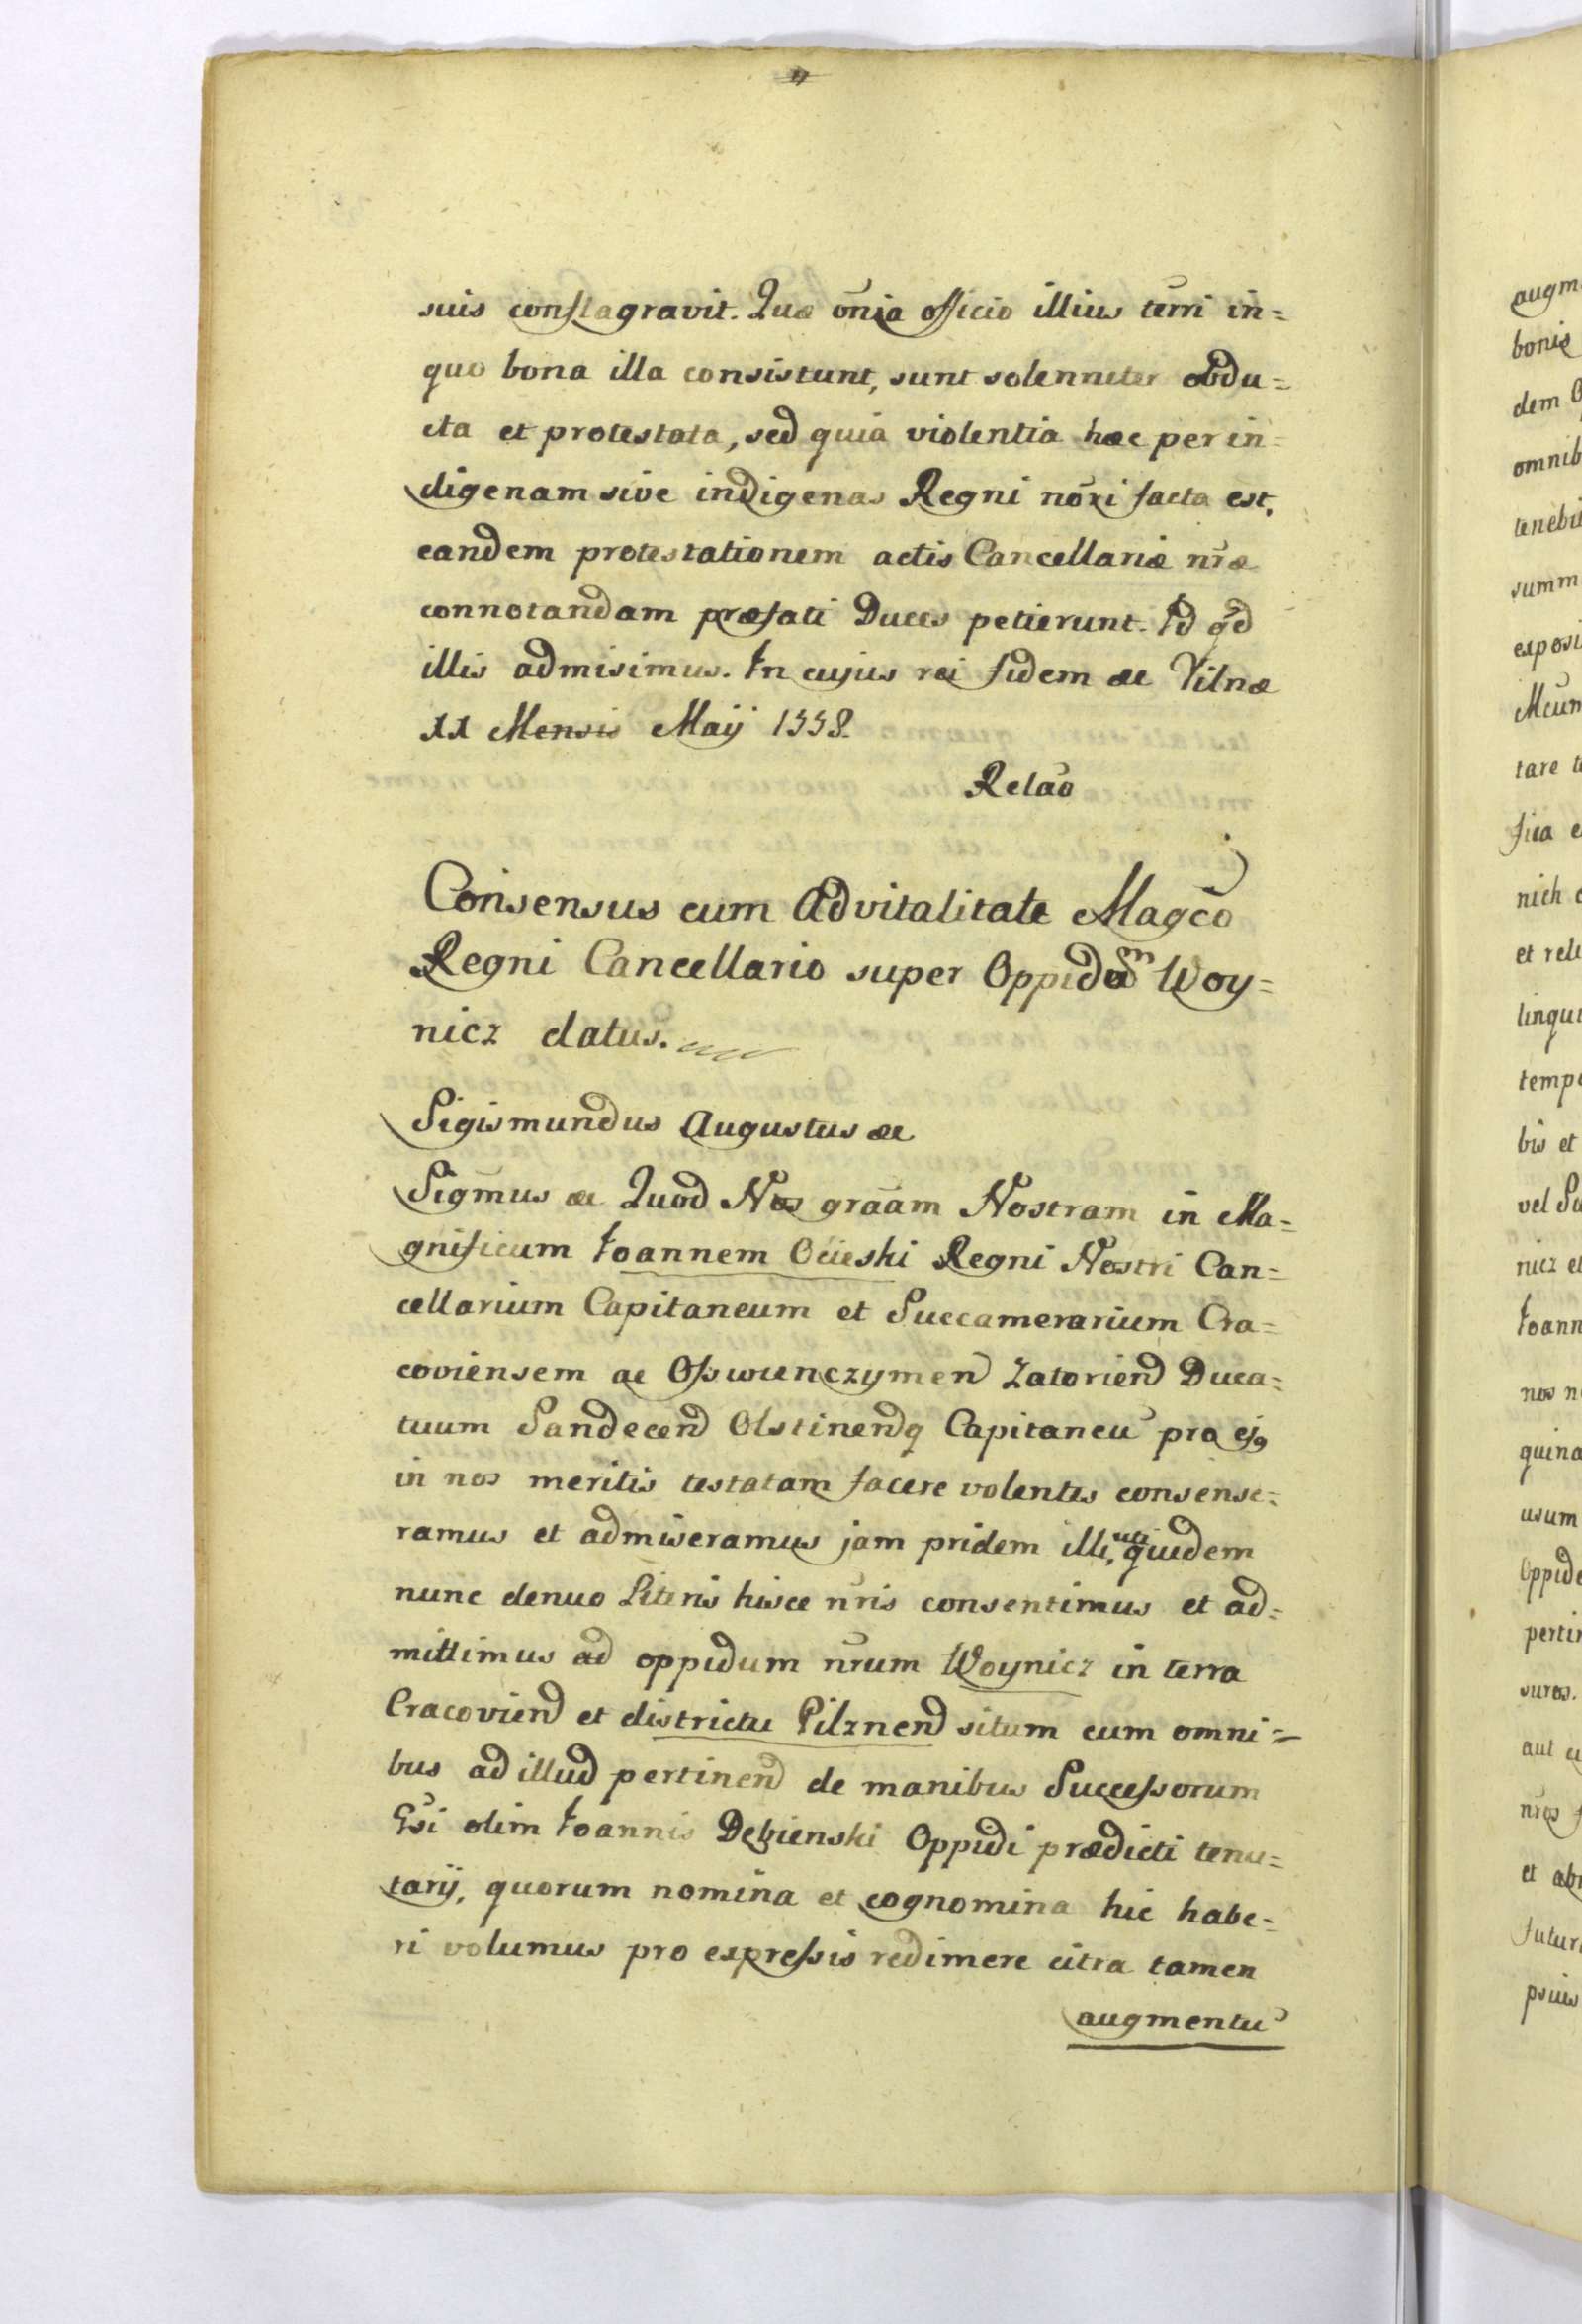 suis conflagravit. Quæ oñia officio illius terri in=
quo bona illa consistunt, sunt solenniter obdu=
cta et protestata, sed quia violentia hæc per in=
digenam sive indigenas Regni nõri facta est,
eandem protestationem actis Cancellariæ nr̃æ
connotandam præfati Duces petierunt. Id qd̃
illis admisimus. In cujus rei fidem &c Vilnæ
XX Mensis Maij 1558.
Relaõ
Consensus cum Advitalitate Magc̃o
Regni Cancellario super Oppidum Woy=
nicz datus.
Sigismundus Augustus &c
Sigm̃us &c Quod Nos graãm Nostram in Ma=
gnificum Ioannem Ocieski Regni Nostri Can=
cellarium Capitaneum et Succamerarium Cra=
coviensem ac Osswienczymen Zatoriend Duca=
tuum Sandecend Olstinendq Capitaneũ pro ejq
in nos meritis testatam facere volentes consense=
ramus et admiseramus jam pridem illi, uti quidem
nunc denuo Literis hisce nr̃is consentimus et ad=
mittimus ad oppidum nr̃um Woynicz in terra
Cracoviend et districtu Pilznend situm cum omni=
bus ad illud pertinend de manibus Successorum
Gsi olim Ioannis Dębienski Oppidi prædicti tenu=
tarij, quorum nomina et cognomina hic habe=
ri volumus pro expressis redimere citra tamen
augmentũ
augm
bonis
dem
omnib
tenebi
summ
exposi
Mcum
tare
fica
nich
et reli
linqui
temp
bis et
vel
nicz et
Ioann
nos
quina
usum
Oppid
perti
suros.
aut
nr̃os
et ab
futur